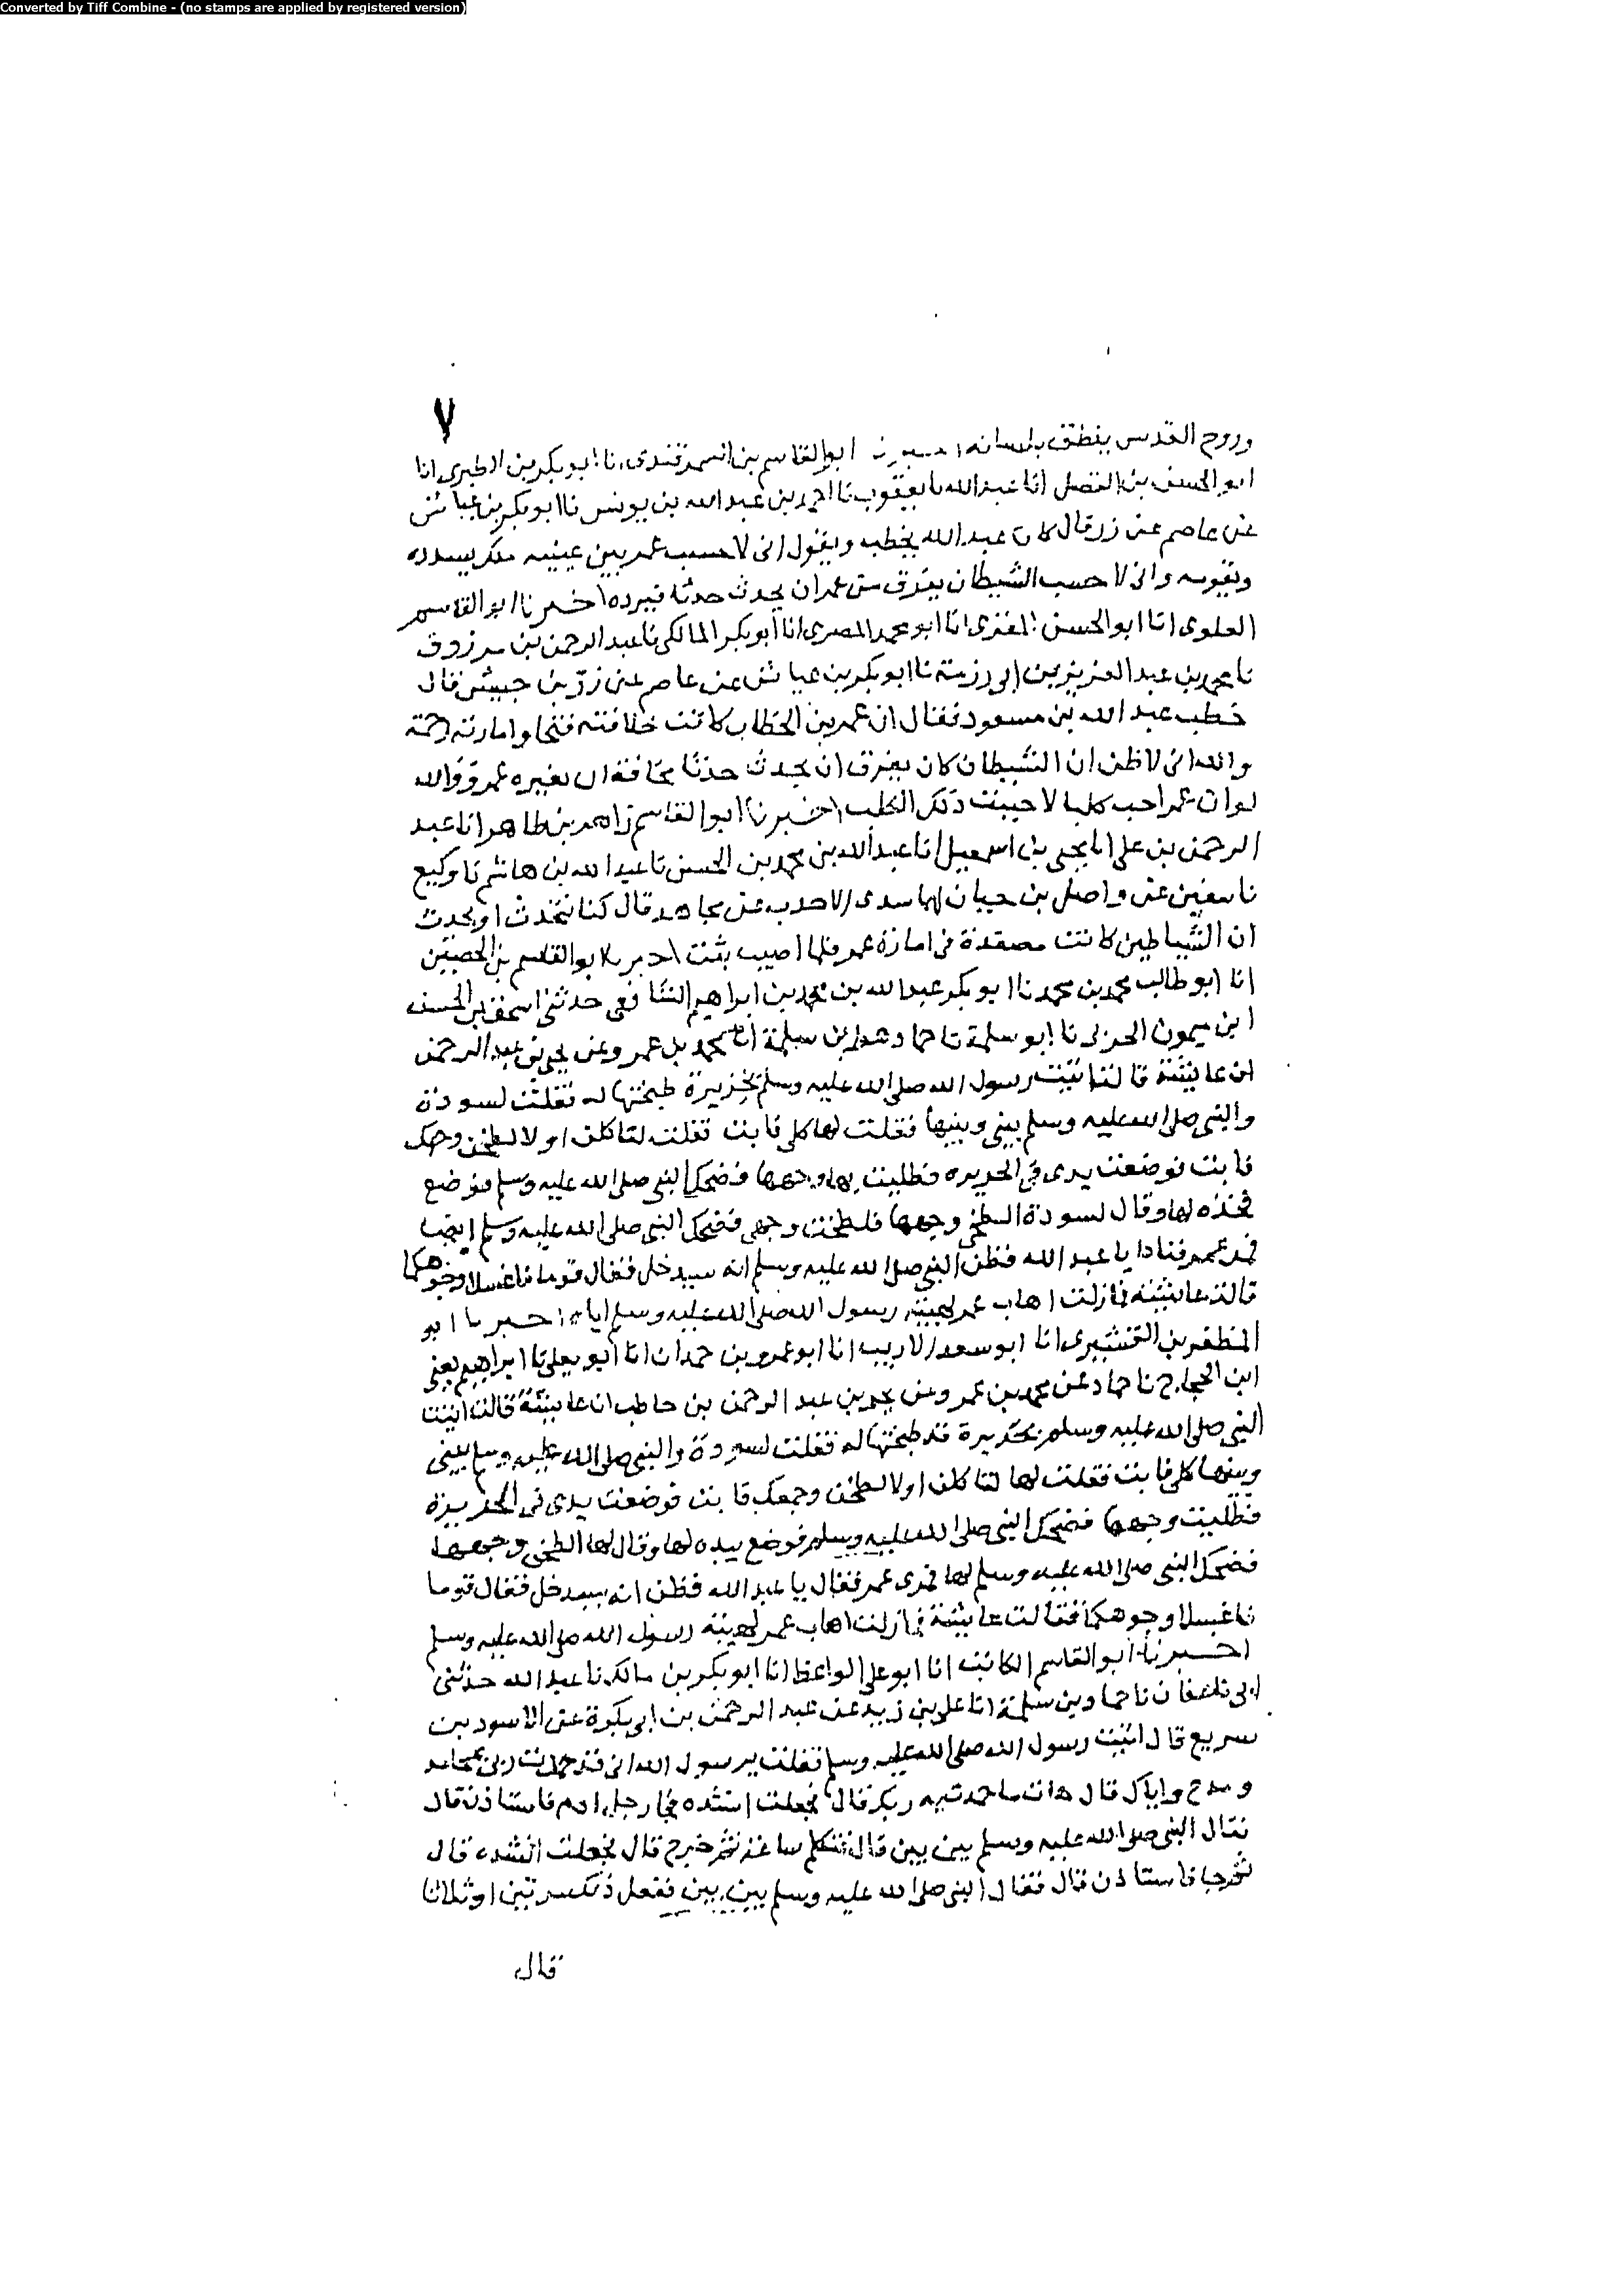 Converted by Tiff Combine - (no stamps are applied by registered version)
٧
وروح القدس ينطق بلسانه ابو القاسم بن السمرقندي نا ابو بكر بن الطبري انا
ابو الحسين بن الفضل انا عبد الله نا يعقوب نا احمد بن عبد الله بن يونس نا ابو بكر بن عياش
عن عاصم عن زر قال كان عبد الله يخطب ويقول اني لاحسب عمر بين عينيه ملك يسدده
ويقومه واني لاحسب الشيطان يفرق من عمر ان يحدث حدثا فيرده اخبرنا ابو القاسم
العلوي انا ابو الحسن المقرى انا ابو محمد المصري انا ابو بكر المالكي نا عبد الرحمن بن مرزوق
نا محمد بن عبد العزيز بن ابي رزمة نا ابو بكر بن عياش عن عاصم عن زر بن حبيش قال
خطب عبد الله بن مسعود فقال ان عمر بن الخطاب كانت خلافته فتحا وامارته رحمة
والله اني لاظن ان الشيطان كان يفرق ان يحدث حدثا مخافة ان يغيره عمر ووالله
لو ان عمر احب كلبا لاحببت ذلك الكلب اخبرنا ابو القاسم زاهر بن طاهر انا عبد
الرحمن بن علي انا يحيى بن اسمعيل انا عبد الله بن محمد بن الحسن نا عبد الله بن هاشم نا وكيع
نا سفين عن واصل بن حيان الاحدب عن مجاهد قال كنا نتحدث او يحدث
ان الشياطين كانت مصفدة في امارة عمر فلما اصيب بثت ابو القاسم بن الحصين
انا ابو طالب محمد بن محمد نا ابو بكر عبد الله بن محمد بن ابراهيم الشافعي حدثني اسحق بن الحسن
ابن ميمون الحربي نا ابو سلمة نا حماد بن سلمة انا محمد بن عمرو عن يحيى بن عبد الرحمن
ان عائشة قالت اتيت رسول الله صلى الله عليه وسلم بخزيرة طبختها له فقلت لسودة
والنبي صلى الله عليه وسلم بيني وبينها فقلت لها كلي فابت فقلت لتاكلن او لالطخن وجهك
فابت فوضعت يدي في الخزيره فطليت بها وجهها فضحك النبي صلى الله عليه وسلم فوضع
فخذه لها وقال لسودة الطخي وجهها فلطخت وجهي فضحك النبي صلى الله عليه وسلم ايضا
فمر عمر فنادا يا عبد الله فظن النبي صلى الله عليه وسلم انه سيدخل فقال قوما فاغسلا وجوهكما
قالت عائشة فما زلت اهاب عمر لهيبة رسول الله صلى الله عليه وسلم اياه اخبرنا ابو
المظفر بن القشيري انا ابو سعد الاديب انا ابو عمرو بن حمدان انا ابو يعلى نا ابراهيم يعني
ابن الحجاج نا حماد عن محمد بن عمرو عن يحيى بن عبد الرحمن بن حاطب ان عائشة قالت اتيت
النبي صلى الله عليه وسلم بخزيرة قد طبختها له فقلت لسودة والنبي صلى الله عليه وسلم بيني
وبينها كلي فابت فقلت لها لتاكلن او لالطخن وجهك فابت فوضعت يدي في الخزيرة
فطليت وجهها فضحك النبي صلى الله عليه وسلم فوضع بيده لها وقال لها الطخي وجهها
فضحك النبي صلى الله عليه وسلم لها فمر عمر فقال يا عبد الله فظن انه سيدخل فقال قوما
فاغسلا وجوهكما فقالت عائشة فما زلت اهاب عمر لهيبة رسول الله صلى الله عليه وسلم
اخبرنا ابو القاسم الكاتب انا ابو علي الواعظ انا ابو بكر بن مالك نا عبد الله حدثني
ابي نا عفان نا حماد بن سلمة انا علي بن زيد عن عبد الرحمن بن ابي بكرة عن الاسود بن
سريع قال اتيت رسول الله صلى الله عليه وسلم فقلت يرسول الله اني قد حمدت ربي بمحامد
ومدح واياك قال هات ما حمدت به ربك قال فجعلت انشده فجا رجل ادم فاستاذن قال
فقال النبي صلى الله عليه وسلم بين بين قال فتكلم ساعة ثم خرج قال فجعلت انشده قال
ثم جا فاستاذن قال فقال النبي صلى الله عليه وسلم بين بين ففعل ذلك مرتين او ثلاثا
قال